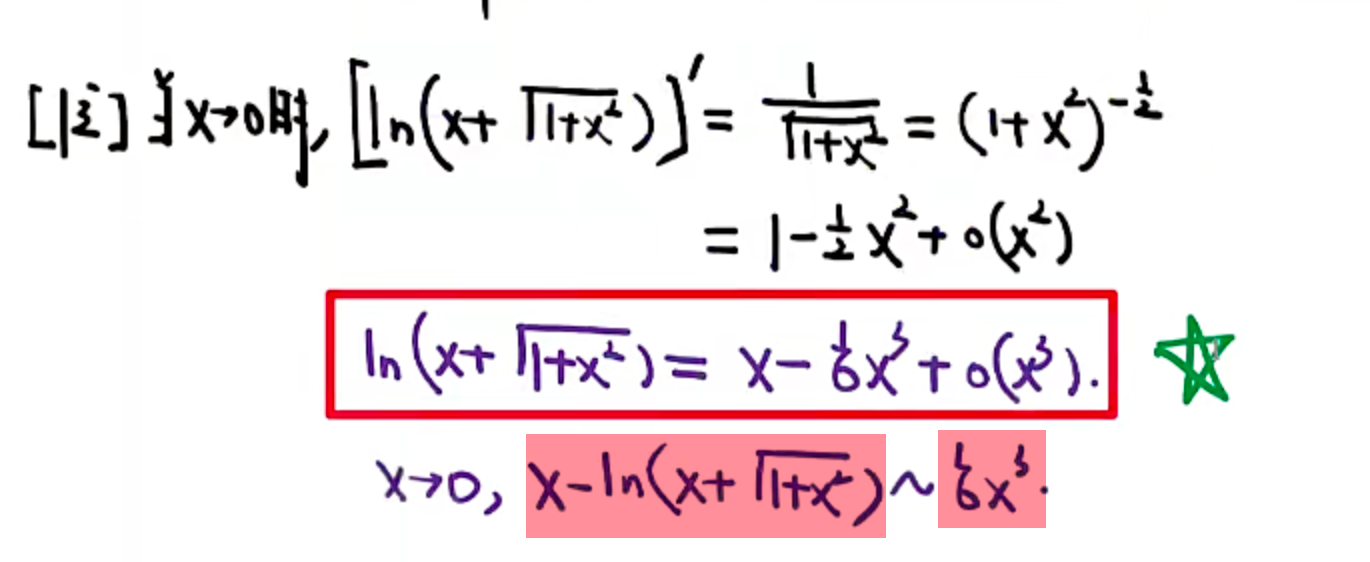 [注] 当x→0时, [ln(x+√(1+x²))]′ = 1/√(1+x²) = (1+x²)^(-1/2)
= 1-½x²+o(x²)
ln(x+√(1+x²)) = x-⅙x³+o(x³).
x→0, x-ln(x+√(1+x²)) ~ ⅙x³.